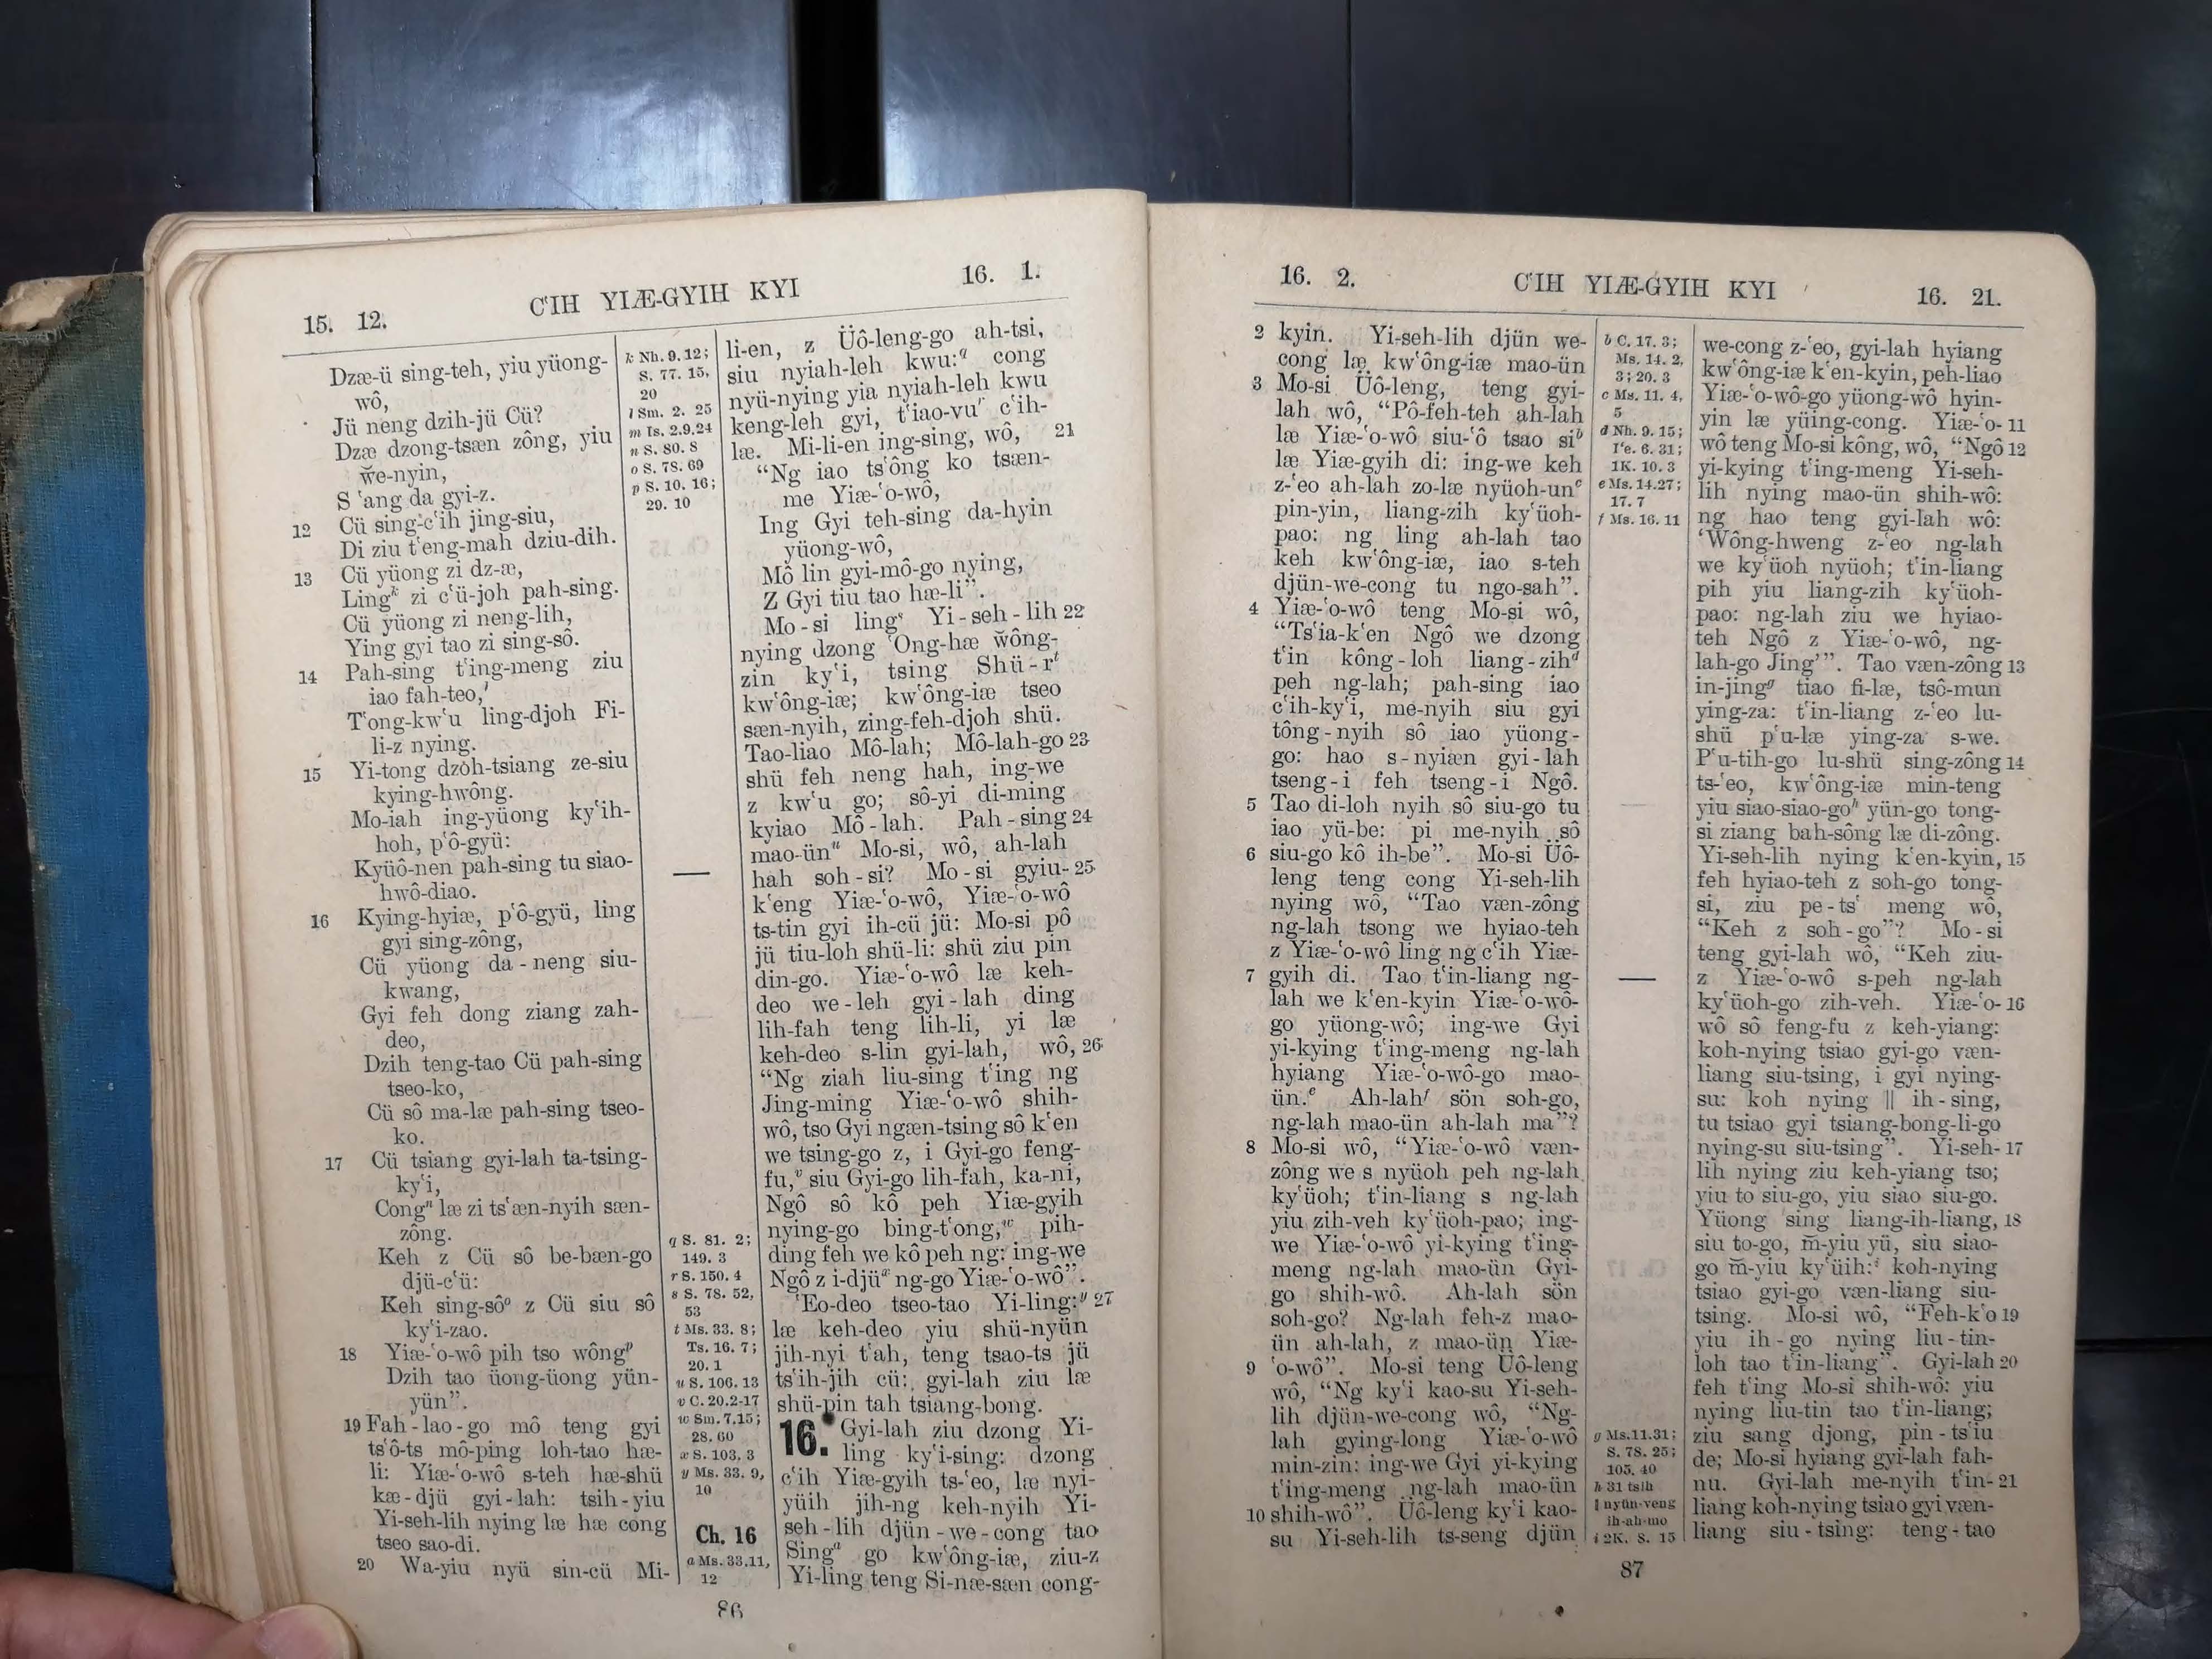 15. 12.
CʻIH YIÆ-GYIH KYI
16. 1.
Dzæ-ü sing-teh, yiu yüong-
wô,
Jü neng dzih-jü Cü?
Dzæ dzong-tsæn zông, yiu
w̆e-nyin,
S ʻang da gyi-z.
12 Cü sing-cʻih jing-siu,
Di ziu tʻeng-mah dziu-dih.
13 Cü yüong zi dz-æ,
Lingᵏ zi cʻü-joh pah-sing.
Cü yüong zi neng-lih,
Ying gyi tao zi sing-sô.
14 Pah-sing tʻing-meng ziu
iao fah-teo,ˡ
Tʻong-kwʻu ling-djoh Fi-
li-z nying.
15 Yi-tong dzoh-tsiang ze-siu
kying-hwông.
Mo-iah ing-yüong kyʻih-
hoh, pʻô-gyü:
Kyüô-nen pah-sing tu siao-
hwô-diao.
16 Kying-hyiæ, pʻô-gyü, ling
gyi sing-zông,
Cü yüong da-neng siu-
kwang,
Gyi feh dong ziang zah-
deo,
Dzih teng-tao Cü pah-sing
tseo-ko,
Cü sô ma-læ pah-sing tseo-
ko.
17 Cü tsiang gyi-lah ta-tsing-
kyʻi,
Congⁿ læ zi tsʻæn-nyih sæn-
zông.
Keh z Cü sô be-bæn-go
djü-cʻü:
Keh sing-sôᵒ z Cü siu sô
kyʻi-zao.
18 Yiæ-ʻo-wô pih tso wôngᵖ
Dzih tao üong-üong yün-
yün”.
19 Fah-lao-go mô teng gyi
tsʻô-ts mô-ping loh-tao hæ-
li: Yiæ-ʻo-wô s-teh hæ-shü
kæ-djü gyi-lah: tsih-yiu
Yi-seh-lih nying læ hæ cong
tseo sao-di.
20 Wa-yiu nyü sin-cü Mi-
k Nh. 9. 12;
S. 77. 15,
20
l Sm. 2. 25
m Is. 2.9.24
n S. 80. 8
o S. 78. 69
p S. 10. 16;
29. 10
q S. 81. 2;
149. 3
r S. 150. 4
s S. 78. 52,
53
t Ms. 33. 8;
Ts. 16. 7;
20. 1
u S. 106. 13
v C. 20.2-17
w Sm. 7.15;
28. 60
x S. 103. 3
y Ms. 33. 9,
10
Ch. 16
a Ms. 33.11,
12
li-en, z Üô-leng-go ah-tsi,
siu nyiah-leh kwu:ᵍ cong
nyü-nying yia nyiah-leh kwu
keng-leh gyi, tʻiao-vuʳ cʻih-
læ. Mi-li-en ing-sing, wô, 21
“Ng iao tsʻông ko tsæn-
me Yiæ-ʻo-wô,
Ing Gyi teh-sing da-hyin
yüong-wô,
Mô lin gyi-mô-go nying,
Z Gyi tiu tao hæ-li”.
Mo-si lingˢ Yi-seh-lih 22
nying dzong ʻOng-hæ w̆ông-
zin kyʻi, tsing Shü-rᵗ
kwʻông-iæ; kwʻông-iæ tseo
sæn-nyih, zing-feh-djoh shü.
Tao-liao Mô-lah; Mô-lah-go 23
shü feh neng hah, ing-we
z kwʻu go; sô-yi di-ming
kyiao Mô-lah. Pah-sing 24
mao-ünᵘ Mo-si, wô, ah-lah
hah soh-si? Mo-si gyiu- 25
kʻeng Yiæ-ʻo-wô, Yiæ-ʻo-wô
ts-tin gyi ih-cü jü: Mo-si pô
jü tiu-loh shü-li: shü ziu pin
din-go. Yiæ-ʻo-wô læ keh-
deo we-leh gyi-lah ding
lih-fah teng lih-li, yi læ
keh-deo s-lin gyi-lah, wô, 26
“Ng ziah liu-sing tʻing ng
Jing-ming Yiæ-ʻo-wô shih-
wô, tso Gyi ngæn-tsing sô kʻen
we tsing-go z, i Gyi-go feng-
fu,ᵛ siu Gyi-go lih-fah, ka-ni,
Ngô sô kô peh Yiæ-gyih
nying-go bing-tʻong,ʷ pih-
ding feh we kô peh ng: ing-we
Ngô z i-djüˣ ng-go Yiæ-ʻo-wô”.
ʻEo-deo tseo-tao Yi-ling:ʸ 27
læ keh-deo yiu shü-nyün
jih-nyi tʻah, teng tsao-ts jü
tsʻih-jih cü: gyi-lah ziu læ
shü-pin tah tsiang-bong.
16. Gyi-lah ziu dzong Yi-
ling kyʻi-sing: dzong
cʻih Yiæ-gyih ts-ʻeo, læ nyi-
yüih jih-ng keh-nyih Yi-
seh-lih djün-we-cong tao
Singᵃ go kwʻông-iæ, ziu-z
Yi-ling teng Si-næ-sæn cong-
86
16. 2.
CʻIH YIÆ-GYIH KYI
16. 21.
2 kyin. Yi-seh-lih djün we-
cong læ kwʻông-iæ mao-ün
3 Mo-si Üô-leng, teng gyi-
lah wô, “Pô-feh-teh ah-lah
læ Yiæ-ʻo-wô siu-ʻô tsao siᵇ
læ Yiæ-gyih di: ing-we keh
z-ʻeo ah-lah zo-læ nyüoh-unᶜ
pin-yin, liang-zih kyʻüoh-
pao: ng ling ah-lah tao
keh kwʻông-iæ, iao s-teh
djün-we-cong tu ngo-sah”.
4 Yiæ-ʻo-wô teng Mo-si wô,
“Tsʻia-kʻen Ngô we dzong
tʻin kông-loh liang-zihᵈ
peh ng-lah; pah-sing iao
cʻih-kyʻi, me-nyih siu gyi
tông-nyih sô iao yüong-
go: hao s-nyiæn gyi-lah
tseng-i feh tseng-i Ngô.
5 Tao di-loh nyih sô siu-go tu
iao yü-be: pi me-nyih sô
6 siu-go kô ih-be”. Mo-si Üô-
leng teng cong Yi-seh-lih
nying wô, “Tao væn-zông
ng-lah tsong we hyiao-teh
z Yiæ-ʻo-wô ling ng cʻih Yiæ-
7 gyih di. Tao tʻin-liang ng-
lah we kʻen-kyin Yiæ-ʻo-wô-
go yüong-wô; ing-we Gyi
yi-kying tʻing-meng ng-lah
hyiang Yiæ-ʻo-wô-go mao-
ün.ᵉ Ah-lahᶠ sön soh-go,
ng-lah mao-ün ah-lah ma”?
8 Mo-si wô, “Yiæ-ʻo-wô væn-
zông we s nyüoh peh ng-lah
kyʻüoh; tʻin-liang s ng-lah
yiu zih-veh kyʻüoh-pao; ing-
we Yiæ-ʻo-wô yi-kying tʻing-
meng ng-lah mao-ün Gyi-
go shih-wô. Ah-lah sön
soh-go? Ng-lah feh-z mao-
ün ah-lah, z mao-ün Yiæ-
9 ʻo-wô”. Mo-si teng Üô-leng
wô, “Ng kyʻi kao-su Yi-seh-
lih djün-we-cong wô, “Ng-
lah gying-long Yiæ-ʻo-wô
min-zin: ing-we Gyi yi-kying
tʻing-meng ng-lah mao-ün
10 shih-wô”. Üô-leng kyʻi kao-
su Yi-seh-lih ts-seng djün
b C. 17. 3;
Ms. 14. 2,
3; 20. 3
c Ms. 11. 4,
5
d Nh. 9. 15;
Iʻe. 6. 31;
1K. 10. 3
e Ms. 14.27;
17. 7
f Ms. 16. 11
g Ms.11.31;
S. 78. 25;
105. 40
h 31 tsih
‖ nyün-veng
ih-ah-mo
i 2K. 8. 15
we-cong z-ʻeo, gyi-lah hyiang
kwʻông-iæ kʻen-kyin, peh-liao
Yiæ-ʻo-wô-go yüong-wô hyin-
yin læ yüing-cong. Yiæ-ʻo- 11
wô teng Mo-si kông, wô, “Ngô 12
yi-kying tʻing-meng Yi-seh-
lih nying mao-ün shih-wô:
ng hao teng gyi-lah wô:
‘Wông-hweng z-ʻeo ng-lah
we kyʻüoh nyüoh; tʻin-liang
pih yiu liang-zih kyʻüoh-
pao: ng-lah ziu we hyiao-
teh Ngô z Yiæ-ʻo-wô, ng-
lah-go Jing’”. Tao væn-zông 13
in-jingᵍ tiao fi-læ, tsô-mun
ying-za: tʻin-liang z-ʻeo lu-
shü pʻu-læ ying-za s-we.
Pʻu-tih-go lu-shü sing-zông 14
ts-ʻeo, kwʻông-iæ min-teng
yiu siao-siao-goʰ yün-go tong-
si ziang bah-sông læ di-zông.
Yi-seh-lih nying kʻen-kyin, 15
feh hyiao-teh z soh-go tong-
si, ziu pe-tsʻ meng wô,
“Keh z soh-go”? Mo-si
teng gyi-lah wô, “Keh ziu-
z Yiæ-ʻo-wô s-peh ng-lah
kyʻüoh-go zih-veh. Yiæ-ʻo- 16
wô sô feng-fu z keh-yiang:
koh-nying tsiao gyi-go væn-
liang siu-tsing, i gyi nying-
su: koh nying ‖ ih-sing,
tu tsiao gyi tsiang-bong-li-go
nying-su siu-tsing”. Yi-seh- 17
lih nying ziu keh-yiang tso;
yiu to siu-go, yiu siao siu-go.
Yüong sing liang-ih-liang, 18
siu to-go, m̆-yiu yü, siu siao-
go m̆-yiu kyʻüih:ⁱ koh-nying
tsiao gyi-go væn-liang siu-
tsing. Mo-si wô, “Feh-kʻo 19
yiu ih-go nying liu-tin-
loh tao tʻin-liang”. Gyi-lah 20
feh tʻing Mo-si shih-wô: yiu
nying liu-tin tao tʻin-liang;
ziu sang djong, pin-tsʻiu
de; Mo-si hyiang gyi-lah fah-
nu. Gyi-lah me-nyih tʻin- 21
liang koh-nying tsiao gyi væn-
liang siu-tsing: teng-tao
87